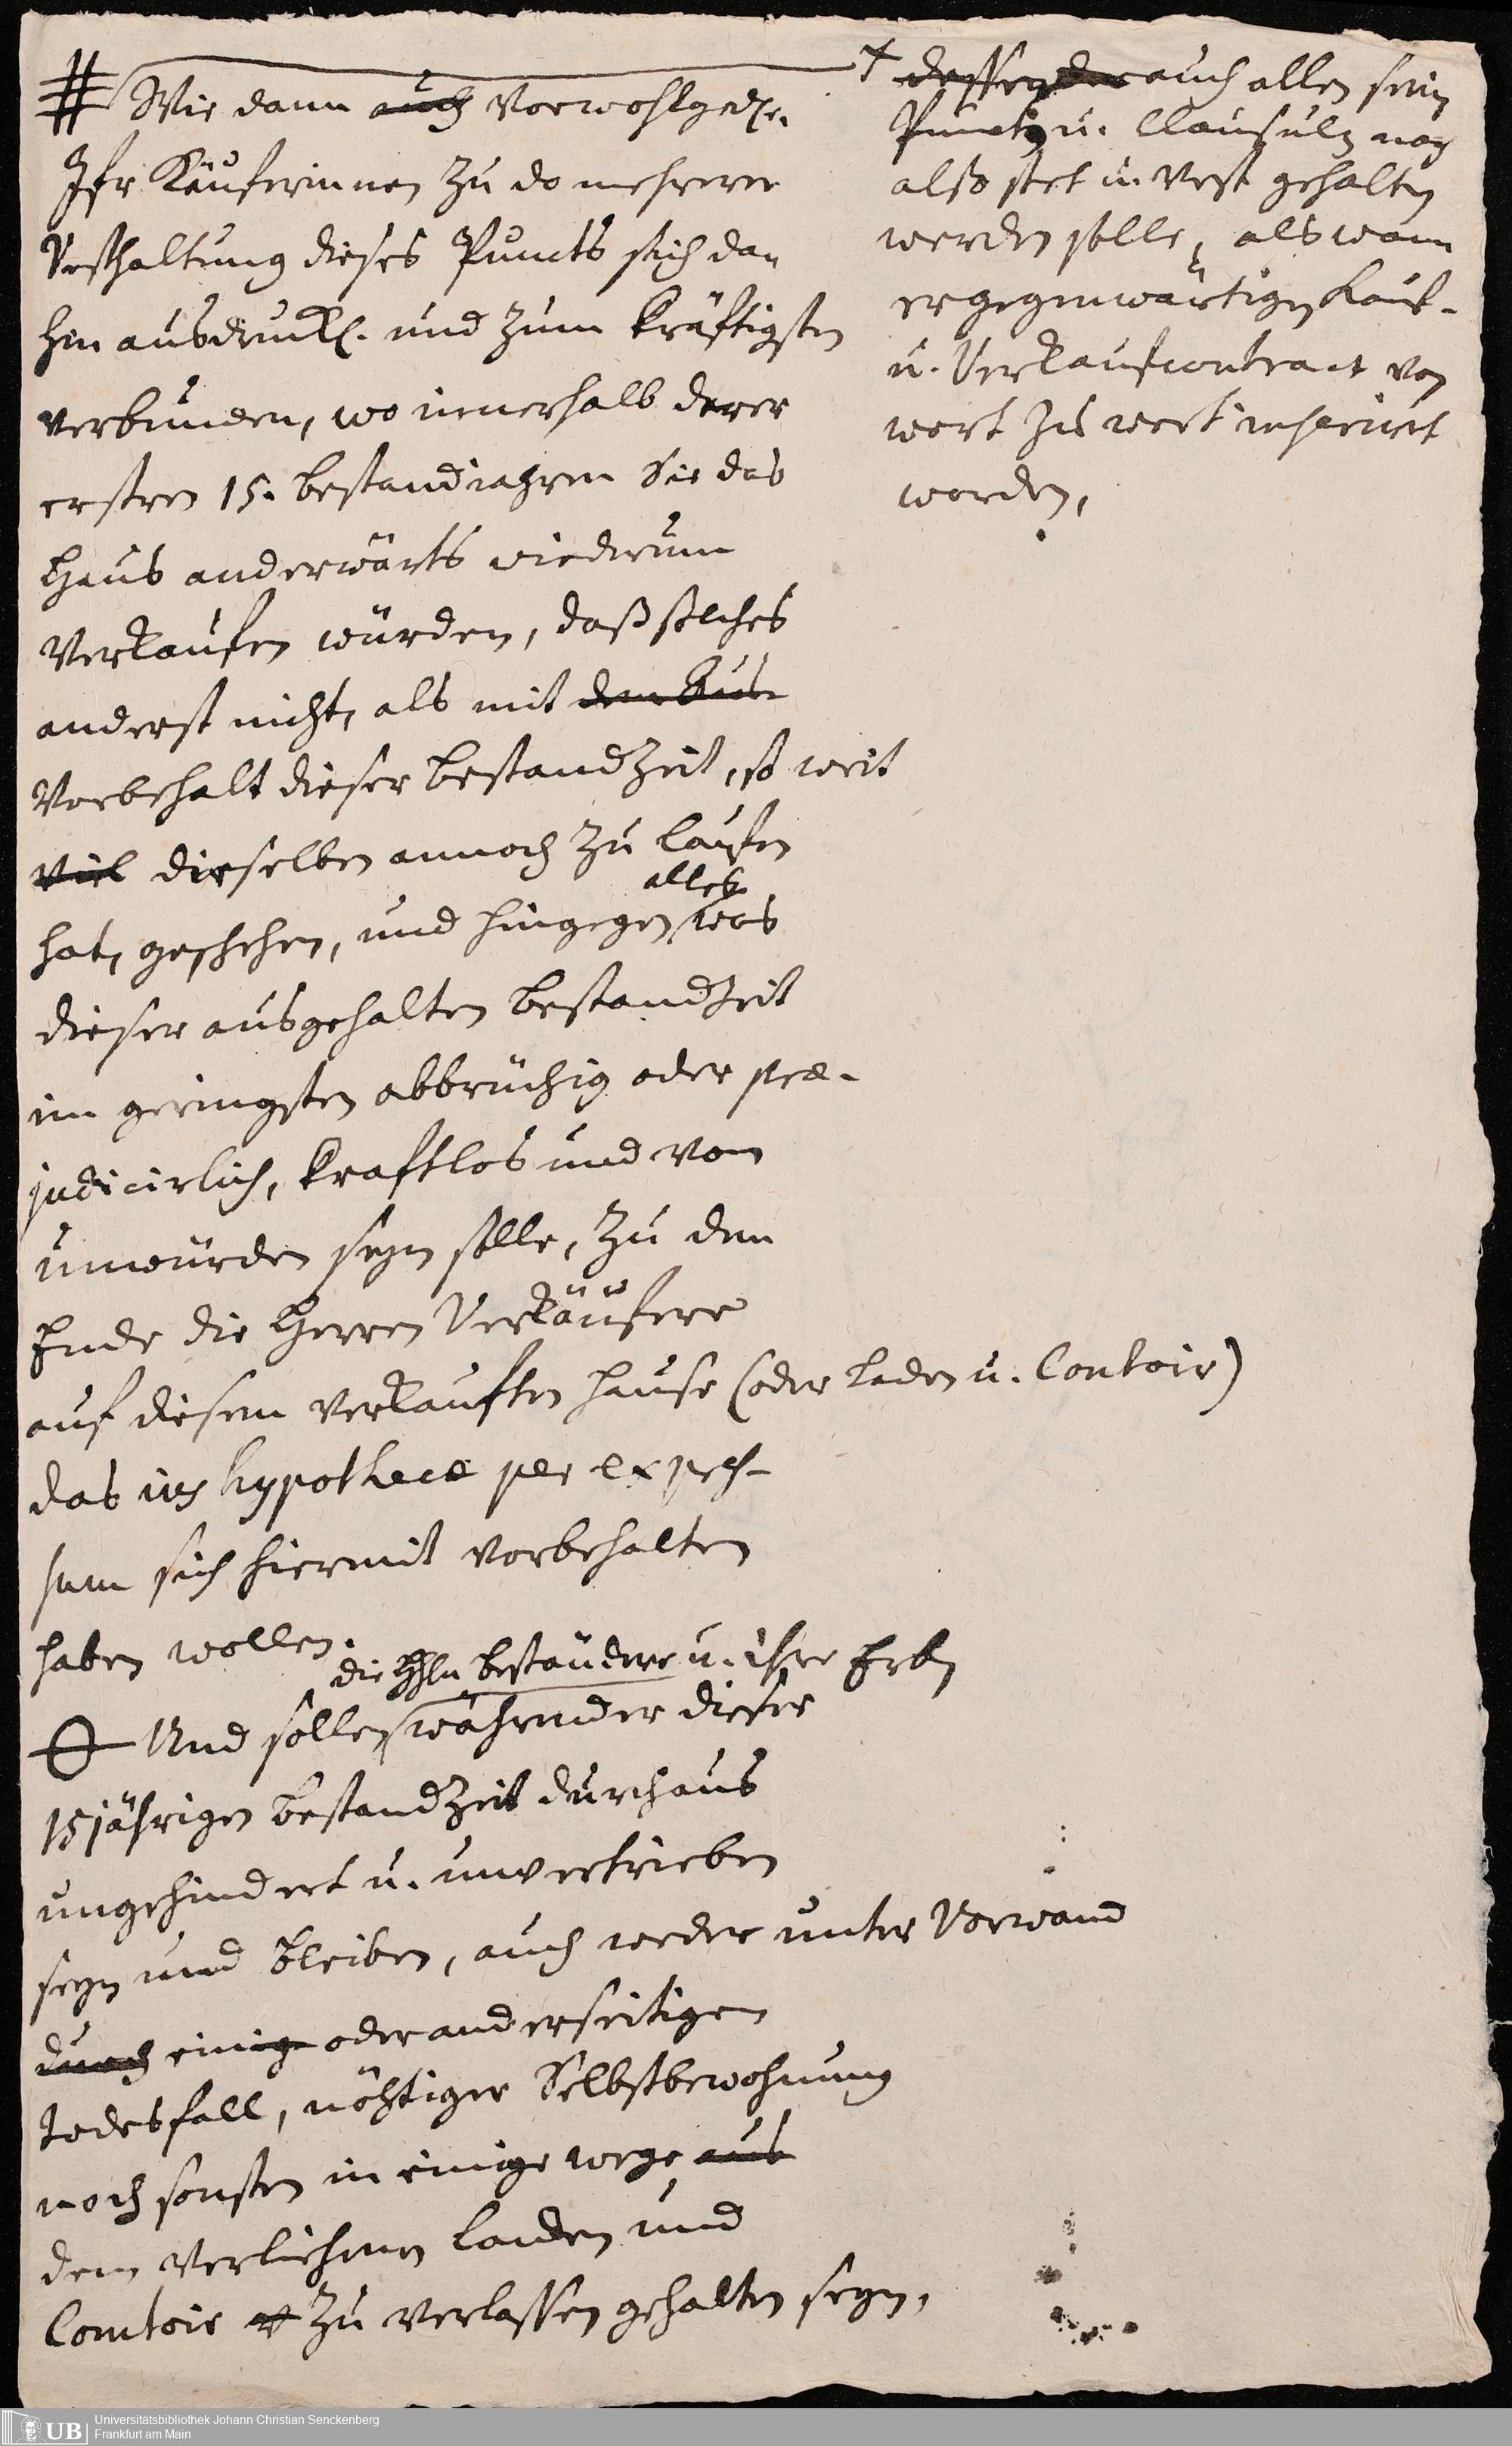 # Wie dann auch Vorwohlged.
Ihr Käuferinnen zu do mehrerer
Vesthaltung dieses Puncts sich da-
hin ausdrückl. und zum kräftigsten
verbunden, wo innerhalb derer
ersten 15. bestandiahren Sie das
Haus anderwärts wiederum
verkaufen würden, daß solches
anderst nicht, als mit dem Aus-
Vorbehalt dieser bestandzeit, so weit
viel dieselben annoch zu laufen
alles
hat, geschehen, und hingegen was
dieser ausgehalten bestandzeit
im geringsten abbrüchig oder præ-
judicirlich, kraftlos und von
unwürden seyn solle, zu dem
Ende die Herren Verkäufere
auf diesem verkauften hause (oder laden u. Contoir)
das ius hypothecæ per expres-
sum sich hiermit vorbehalten
haben wollen.
die HHln beständere u. ihre Erben
Und sollen währender dieser
15jährigen bestandzeit durchaus
ungehindert u. unvertrieben
seyn und bleiben, auch weder unter Vorwand
durch einig- oder anderseitigen
todesfall, nöhtiger Selbstbewohnung
noch sonsten in einige wege aus
dem verliehenen laden und
Comtoir zu verlassen gehalten seyn,
† dessen der auch allen sein
Puncten u. Clausuln nach
also stet u. vest gehalten
werden solle, als wann
er gegenwärtigen Kauf-
u. Verkaufcontract von
wort zu wort inserirt
worden,
Universitätsbibliothek Johann Christian Senckenberg
Frankfurt am Main
UB